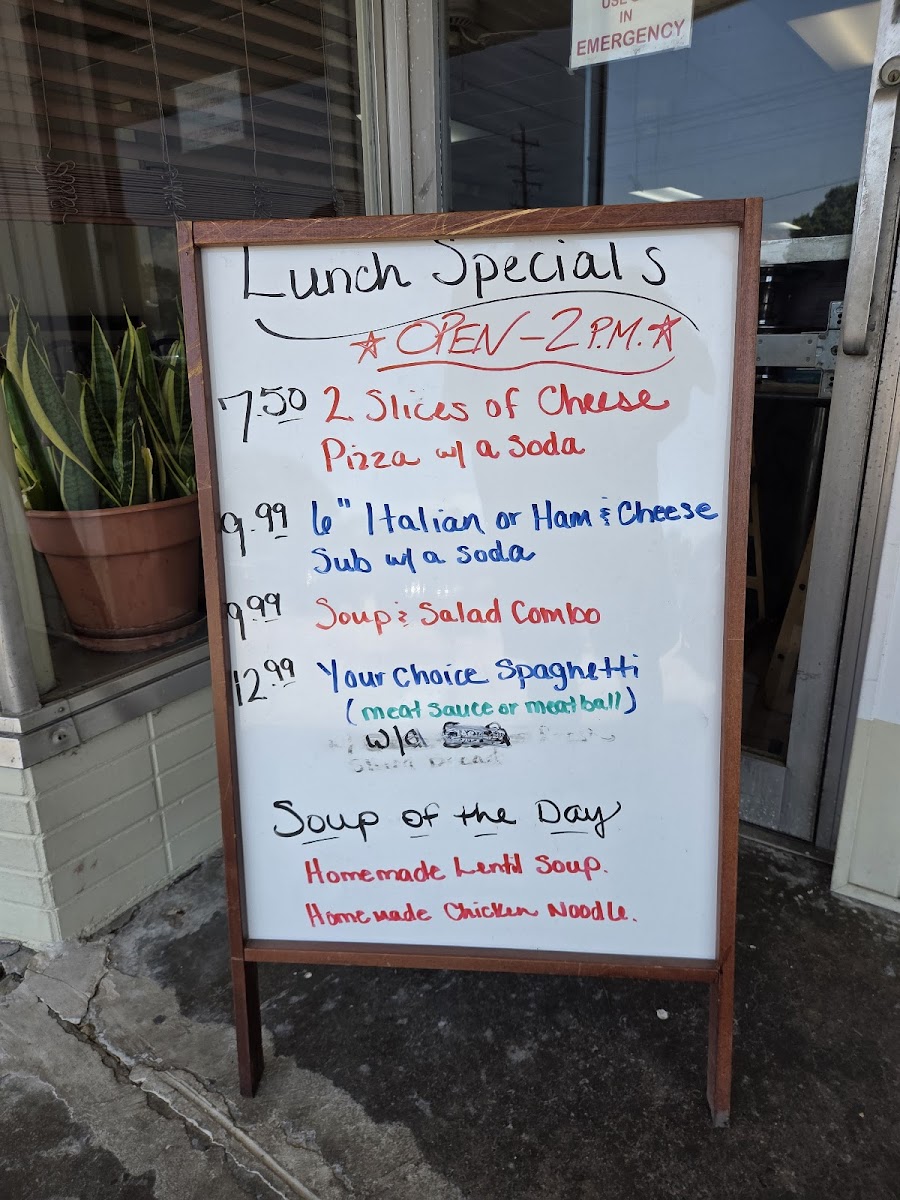 USE
IN
EMERGENCY
Lunch Specials
☆ OPEN - 2 P.M. ☆
7.50 2 Slices of Cheese
Pizza w/ a Soda
9.99 6" Italian or Ham & Cheese
Sub w/ a soda
9.99 Soup & Salad Combo
12.99 Your Choice Spaghetti
(meat sauce or meatball)
w/a
Soup of the Day
Homemade Lentil Soup.
Homemade Chicken Noodle.